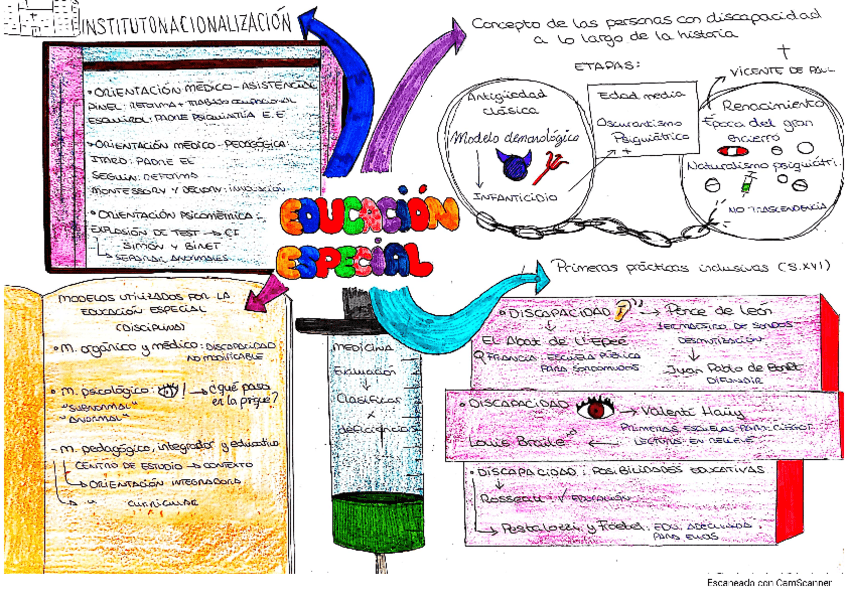 INSTITUTONACIONALIZACIÓN
• ORIENTACIÓN MÉDICO-ASISTENCIAL
PINEL: REFORMA + TRABAJO OCUPACIONAL
ESQUIROL: PADRE PSIQUIATRÍA E.E
• ORIENTACIÓN MÉDICO-PEDAGÓGICA:
ITARD: PADRE EE
SEGUIN: REFORMO
MONTESSORY Y DECROLY: INNOVACIÓN
• ORIENTACIÓN PSICOMÉTRICA:
EXPLOSIÓN DE TEST → CI
SIMÓN Y BINET
↳ SEPARAR ANORMALES
Concepto de las personas con discapacidad
a lo largo de la historia
ETAPAS:
Antigüedad
Clásica
Modelo demonológico
↓
INFANTICIDIO
Edad media
Oscurantismo
Psiquiátrico
+
VICENTE DE PAUL
Renacimiento
Época del gran
encierro
Naturalismo psiquiátri.
NO TRASCENDENCIA
EDUCACIÓN
ESPECIAL
Primeras prácticas inclusivas (S.XVI)
• DISCAPACIDAD → Ponce de León
DESMUTIZACIÓN
↓
Juan Pablo de Bonet
DIFUNDIR
↓
El Abat de L'Epeé
FRANCIA: ESCUELA PÚBLICA
PARA SORDOMUDOS
• DISCAPACIDAD → Valentí Haüy
PRIMERAS ESCUELAS PARA CIEGOS
Louis Braile ← LECTURA EN RELIEVE
• DISCAPACIDAD: POSIBILIDADES EDUCATIVAS
Rosseau: √ EDUCACIÓN
Pestalozzi y Froebel: EDU. ADECUADA
PARA ELLOS
MODELOS UTILIZADOS POR LA
EDUCACIÓN ESPECIAL
(DISCIPLINAS)
• M. orgánico y médico: DISCAPACIDAD
NO MODIFICABLE
• M. psicológico: → ¿qué pasa
en la psique?
"SUBNORMAL"
"ANORMAL"
- M. pedagógico, integrador y educativo
CENTRO DE ESTUDIO → CONTEXTO
↳ ORIENTACIÓN INTEGRADORA
↳ " CURRICULAR
MEDICINA
Evaluación
↓
Clasificar
x
deficiencias
Escaneado con CamScanner